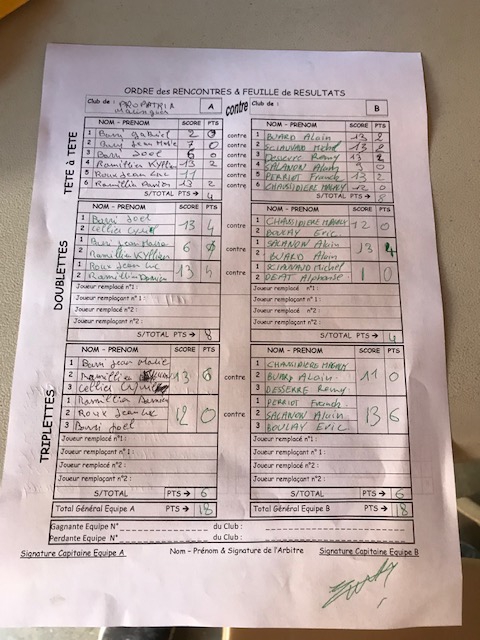 ORDRE des RENCONTRES & FEUILLE de RESULTATS
Club de : PROPATRIA A contre Club de : B
TETE à TETE
NOM - PRENOM SCORE PTS NOM - PRENOM SCORE PTS
1 Gabriel 2 0 contre 1 BUARD Alain 13
2 Jean Marie 7 0 contre 2 SCIAUVAUD Michel 13
3 Joel 6 0 contre 3 Remy 13 2
4 Ramillien Kyllian 13 2 contre 4 SALANON Alain 0
5 Roux Jean Luc 11 contre 5 PERRIOT Franck 13 2
6 Ramillien 13 2 contre 6 CHASSIDIERE 12 0
S/TOTAL PTS → 4 S/TOTAL PTS → 8
DOUBLETTES
1 Joel 13 4 contre 1 CHASSIDIERE 12 0
2 Cellier 2 BOULAY Eric
1 Jean Marie 6 0 contre 1 SALANON Alain 13 4
2 Ramillien Kyllian 2 BUARD Alain
1 Roux Jean Luc 13 4 contre 1 SCIAUVAUD Michel 1 0
2 Ramillien 2 DEAT Alphonse
Joueur remplacé n°1 : Joueur remplacé n°1 :
Joueur remplaçant n°1 : Joueur remplaçant n°1 :
Joueur remplacé n°2 : Joueur remplacé n°2 :
Joueur remplaçant n°2 : Joueur remplaçant n°2 :
S/TOTAL PTS → 8 S/TOTAL PTS → 4
TRIPLETTES
NOM - PRENOM SCORE PTS NOM - PRENOM SCORE PTS
1 Jean Marie 1 CHASSIDIERE
2 Ramillien 13 6 contre 2 BUARD Alain 11 0
3 Cellier 3 DESSERRE Remy
1 Ramillien 1 PERRIOT Franck
2 Roux Jean Luc 12 0 contre 2 SALANON Alain 13 6
3 Joel 3 BOULAY Eric
Joueur remplacé n°1 : Joueur remplacé n°1 :
Joueur remplaçant n°1 : Joueur remplaçant n°1 :
Joueur remplacé n°2 : Joueur remplacé n°2 :
Joueur remplaçant n°2 : Joueur remplaçant n°2 :
S/TOTAL PTS → 6 S/TOTAL PTS → 6
Total Général Equipe A PTS → 18 Total Général Equipe B PTS → 18
Gagnante Equipe N° du Club :
Perdante Equipe N° du Club :
Signature Capitaine Equipe A Nom – Prénom & Signature de l'Arbitre Signature Capitaine Equipe B